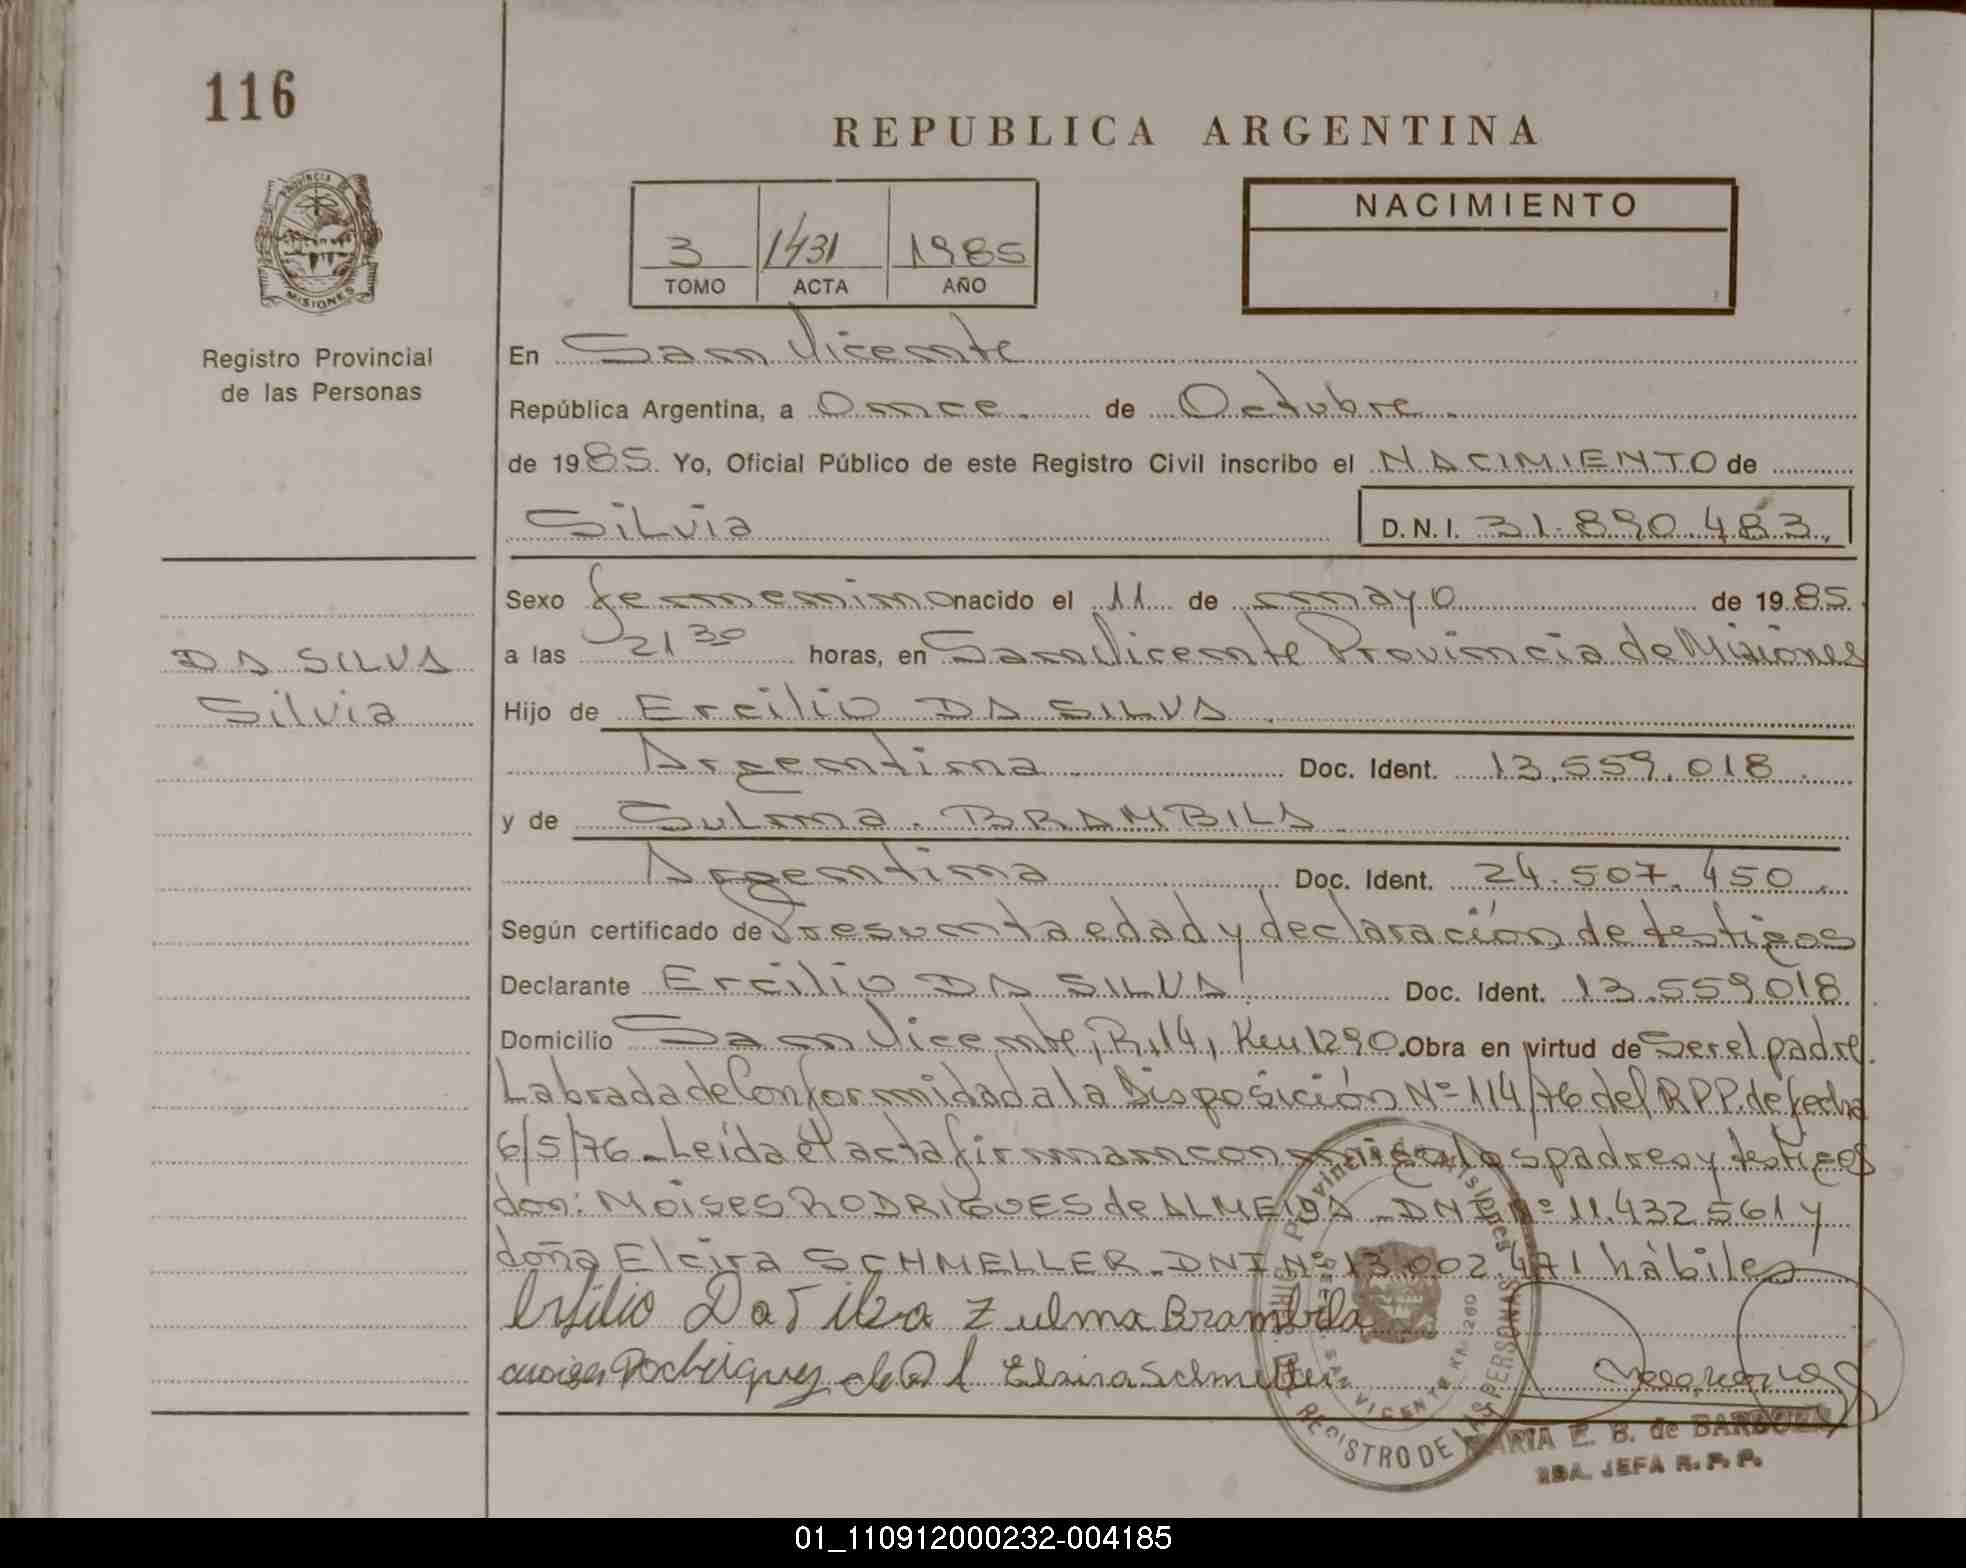 116
REPUBLICA ARGENTINA
PROVINCIA DE
MISIONES
3 1431 1985
TOMO ACTA AÑO
NACIMIENTO
Registro Provincial
de las Personas
En San Vicente
República Argentina, a Once. de Octubre.
de 1985. Yo, Oficial Público de este Registro Civil inscribo el NACIMIENTO de
Silvia D.N.I. 31.890.483.
Sexo femenino nacido el 11 de mayo de 1985.
DA SILVA
Silvia
a las 21 30 horas, en San Vicente Provincia de Misiones
Hijo de Ercilio DA SILVA.
Argentina Doc. Ident. 13.559.018.
y de Sulma. BRAMBILA.
Argentina Doc. Ident. 24.507.450.
Según certificado de Presunta edad y declaración de testigos
Declarante Ercilio DA SILVA. Doc. Ident. 13.559018
Domicilio San Vicente, R.14, Km 1290. Obra en virtud de Ser el padre.
Labrada de Conformidad a la Disposición Nº 114/76 del RPP. de fecha
6/5/76 - Leída el acta firman conmigo los padres y testigos
don: Moises RODRIGUES de ALMEIDA - DNI Nº 11.432561 y
doña Elcira SCHMELLER - DNI Nº 13.002.471 hábiles
Da Zulma Brambila
Rodriguez de Elsira
REGISTRO DE LAS PERSONAS
SAN VICENTE
MARIA E. B. de
JEFA R. P. P.
01_110912000232-004185